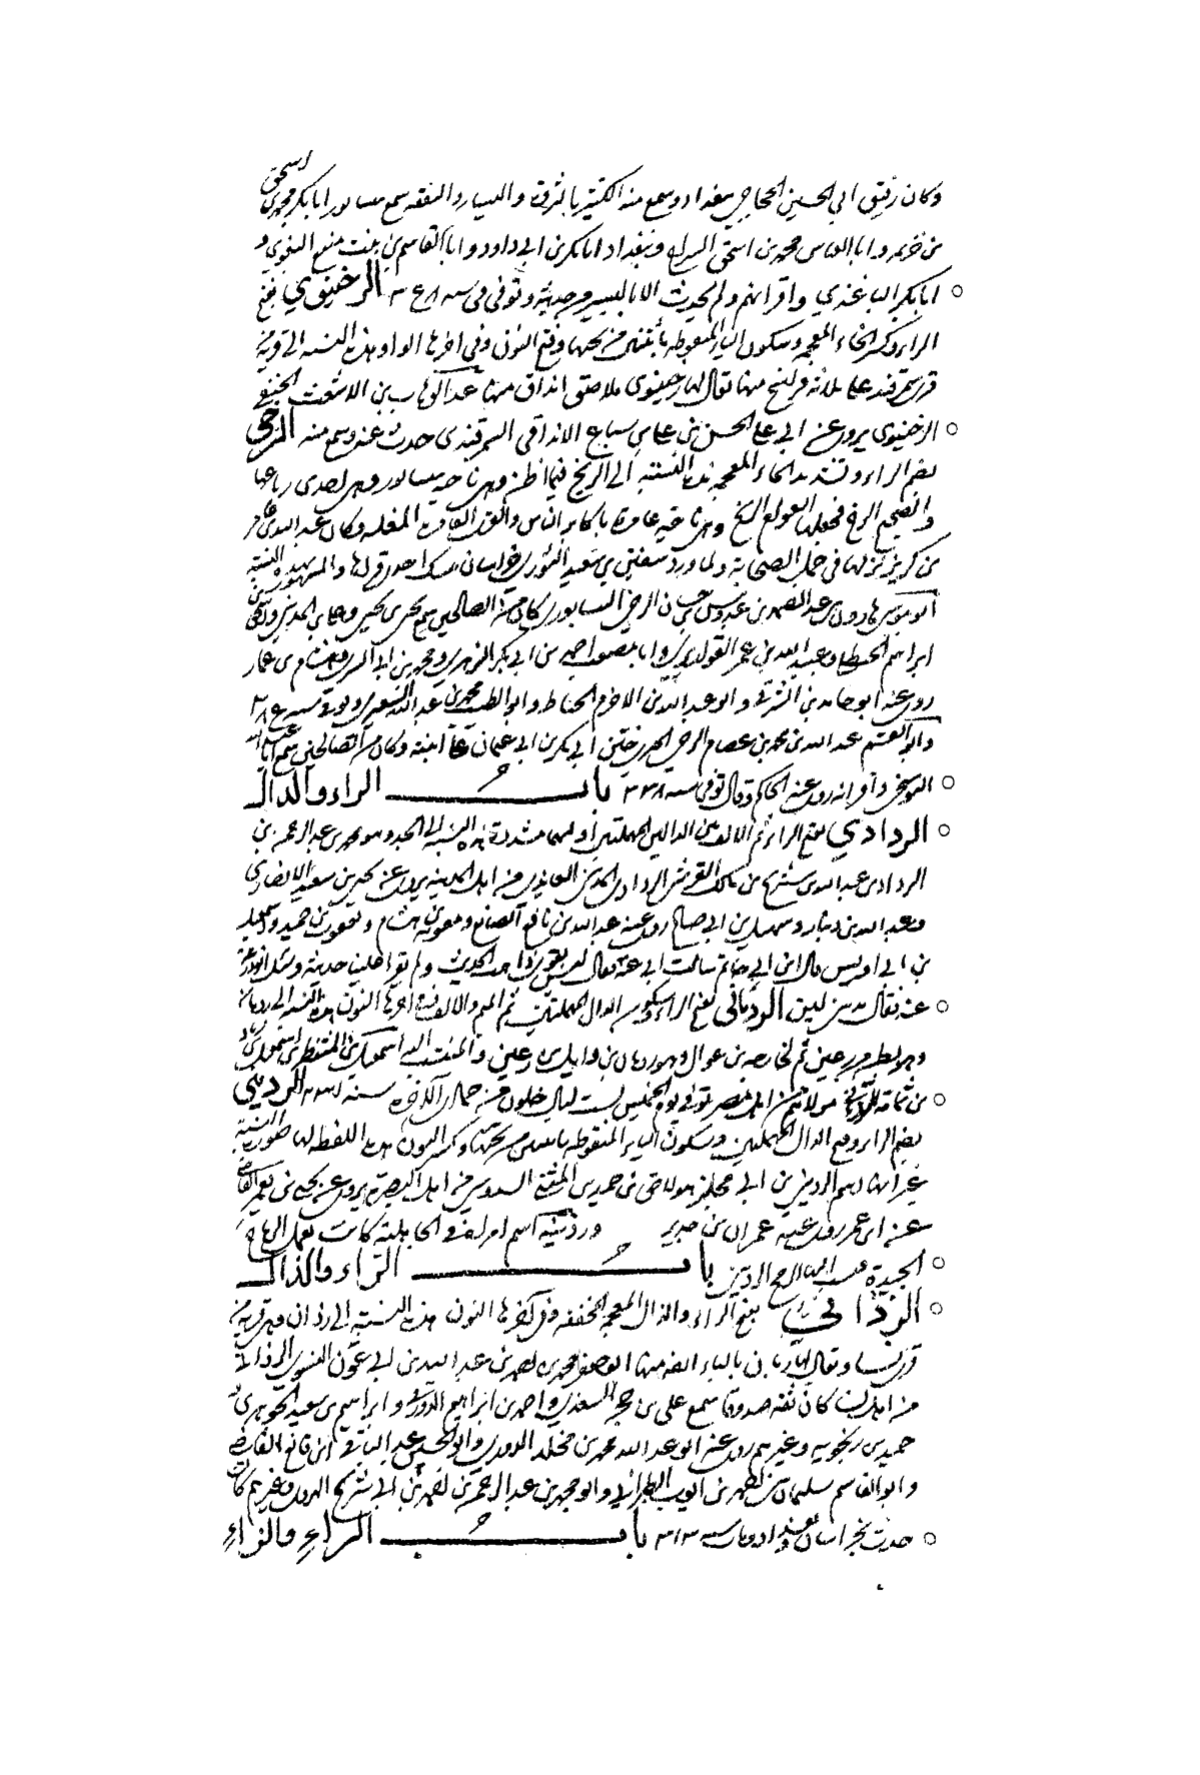 وكان رفيق ابي الحسين الحجاجي ببغداد وسمع منه الكثير بالشرق والسيارد والثقه سمع بنيسابور ابا بكر محمد بن اسحق
بن خزيمه وابا العباس محمد بن اسحق السراج وببغداد ابا بكر بن ابي داود وابا القاسم بن بنت منيع البغوي و
ابا بكر الباغندي واقرانهم ولم يحدث الا باليسير من حديثه وتوفي في سنه ٣٤٨ الرخينوي بفتح
الراء وكسر الخاء المعجمه وسكون الياء المنقوطه باثنتين من تحتها وفتح النون وفي اخرها الواو هذه النسبه الى قريه من
قرى سمرقند على ثلاثه فراسخ منها يقال لها رخينوى ملاصق انداق منها عبد الوهاب بن الاشعث الحنفي
الرخينوى يروى عن ابي على الحسن بن على بن سباع الانداقي السمرقندى حدث عنه وسمع منه الرخي
بضم الراء وتشديد الخاء المعجمه هذه النسبه الى الريخ فيما اظن وهي ناحيه بنيسابور وهي احدى رباعها
والصحيح الرخ فجعلها العوام الريخ وهي ناحيه عامرة باكابر الناس والقرى العامرة المغله وكان عبد الله بن عامر
بن كريز نزلها في جمله الصحابة ولما ورد سفين بن سعيد الثوري خراسان احدى قراها والمشهور بهذه النسبه
ابو موسى هارون بن عبد الصمد بن عبدوس بن حسان الرخي النيسابوري كان من الصالحين سمع يحيى بن يحيى وعلى بن المديني واسحق بن
ابراهيم الحنظلي وعبيد الله بن عمر القواريرى وابا مصعب احمد بن ابي بكر الزهري ومحمد بن ابي السرى وهشام بن عمار
روى عنه ابو حامد بن الشرقي وابو عبد الله بن الاخرم الحناط وابو الطيب محمد بن عبد الله الشعيري وتوفي سنه
وابو القسم عبد الله بن محمد بن عصام الرخي الحيري ختن ابي بكر بن ابي عثمان على ابنته وكان من الصالحين سمع ابا عبد الله
البوسنجي واقرانه روى عنه الحاكم وقال توفي سنه ٣٣٨ باب الراء والدال
الردادي بفتح الراء ثم الالف بين الدالين المهملتين اولهما مشددة هذه النسبه الى الجد وهو محمد بن عبد الرحمن بن
الرداد بن عبد الله بن شريح بن مالك القرشي الردادى المديني العامري من اهل المدينه يروى عن يحيى بن سعيد الانصاري
وعبد الله بن دينار وسهيل بن ابي صالح روى عنه عبد الله بن نافع الصائغ ومعويه بن هشام ويعقوب بن حميد واسمعيل
بن ابي اويس قال ابن ابي حاتم سالت ابي عنه فقال ليس بقوى ذاهب الحديث ولم يقرا علينا حديثه وسئل ابو زرعة
عنه فقال مديني لين الردماني بفتح الراء وسكون الدال المهملتين ثم الميم والالف وفي اخرها النون هذه النسبه الى ردمان
وهو بطن من رعين ثم لخارجه بن عوال وهو ردمان بن وايل بن رعين والمنتسب اليه اسمعيل بن المنتظر بن اسمعيل بن زياد
بن ثمامه الردماني مولاهم من اهل مصر توفي يوم الخميس لست ليال خلون من جمادى الاخره سنه الرديني
بضم الراء وفتح الدال المهملتين وسكون الياء المنقوطه باثنتين من تحتها وكسر النون هذه اللفظه لها صورة النسبه
غير انها اسم الرديني بن ابي مجلز هو لاحق بن حميد بن المثنى السدوسي من اهل البصره يروى عن يحيى بن يعمر القاضي
عن ابن عمر روى عنه عمران بن حدير وردينه اسم امراة في الجاهليه كانت تعمل الرماح
الجيدة فنسب اليها الرمح الرديني باب الراء والذال
الرذاني بفتح الراء والذال المعجمه المخففه وفي اخرها النون هذه النسبه الى رذان وهي قريه من
قرى نسا ويقال لها ريان بالياء ايضا منها ابو جعفر محمد بن احمد بن عبد الله بن ابي عون النسوى الرذاني
من اهل نسا كان ثقه صدوقا سمع على بن حجر السعدي واحمد بن ابراهيم الدورقي وابراهيم بن سعيد الجوهرى و
حميد بن زنجويه وغيرهم روى عنه ابو عبد الله محمد بن مخلد الدوري وابو الحسين عبد الباقي بن قانع القاضي
وابو القاسم سليمان بن احمد بن ايوب الطبراني وابو محمد بن عبد الرحمن بن احمد بن ابي شريح الهروى وغيرهم كان
حدث بخراسان وبغداد ومات سنه ٣١٣ باب الراء والزاء